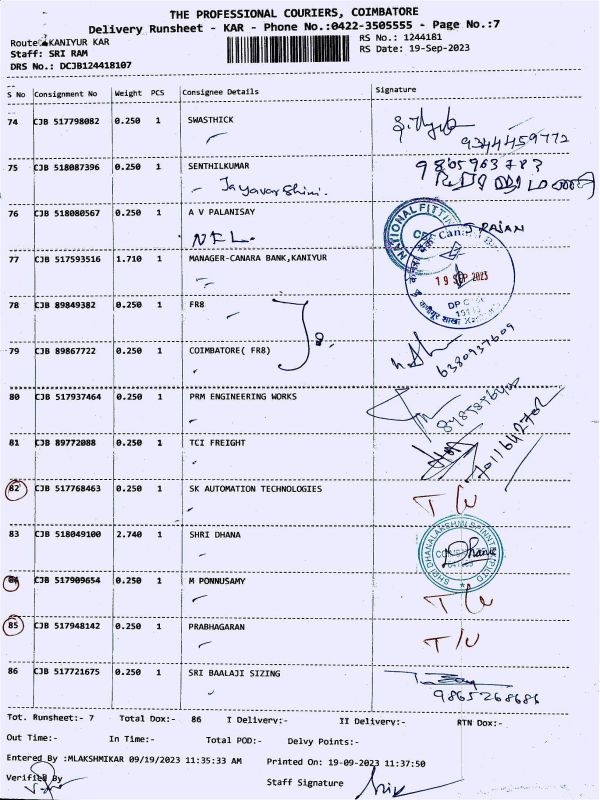 THE PROFESSIONAL COURIERS, COIMBATORE
Delivery Runsheet - KAR - Phone No.:0422-3505555 - Page No.:7
Route: KANIYUR KAR
RS No.: 1244181
Staff: SRI RAM
RS Date: 19-Sep-2023
DRS No.: DCJB124418107
S No Consignment No Weight PCS Consignee Details Signature
74 CJB 517798082 0.250 1 SWASTHICK
9344459772
75 CJB 518087396 0.250 1 SENTHILKUMAR
9865963783
Jayavarshini.
76 CJB 518080567 0.250 1 A V PALANISAY
NATIONAL FITTIN
S RAJAN
NFL.
77 CJB 517593516 1.710 1 MANAGER-CANARA BANK,KANIYUR
Canara B
19 SEP 2023
78 CJB 89849382 0.250 1 FR8
79 CJB 89867722 0.250 1 COIMBATORE( FR8)
6380937609
80 CJB 517937464 0.250 1 PRM ENGINEERING WORKS
81 CJB 89772088 0.250 1 TCI FREIGHT
7011642702
82 CJB 517768463 0.250 1 SK AUTOMATION TECHNOLOGIES
T/L
83 CJB 518049100 2.740 1 SHRI DHANA
SHRI DHANALAKSHMI SPINNTE(P)LTD
Dhana
84 CJB 517909654 0.250 1 M PONNUSAMY
T/L
85 CJB 517948142 0.250 1 PRABHAGARAN
T/L
86 CJB 517721675 0.250 1 SRI BAALAJI SIZING
9865268686
Tot. Runsheet:- 7 Total Dox:- 86 I Delivery:- II Delivery:- RTN Dox:-
Out Time:- In Time:- Total POD:- Delvy Points:-
Entered By :MLAKSHMIKAR 09/19/2023 11:35:33 AM Printed On: 19-09-2023 11:37:50
Verified By
Staff Signature